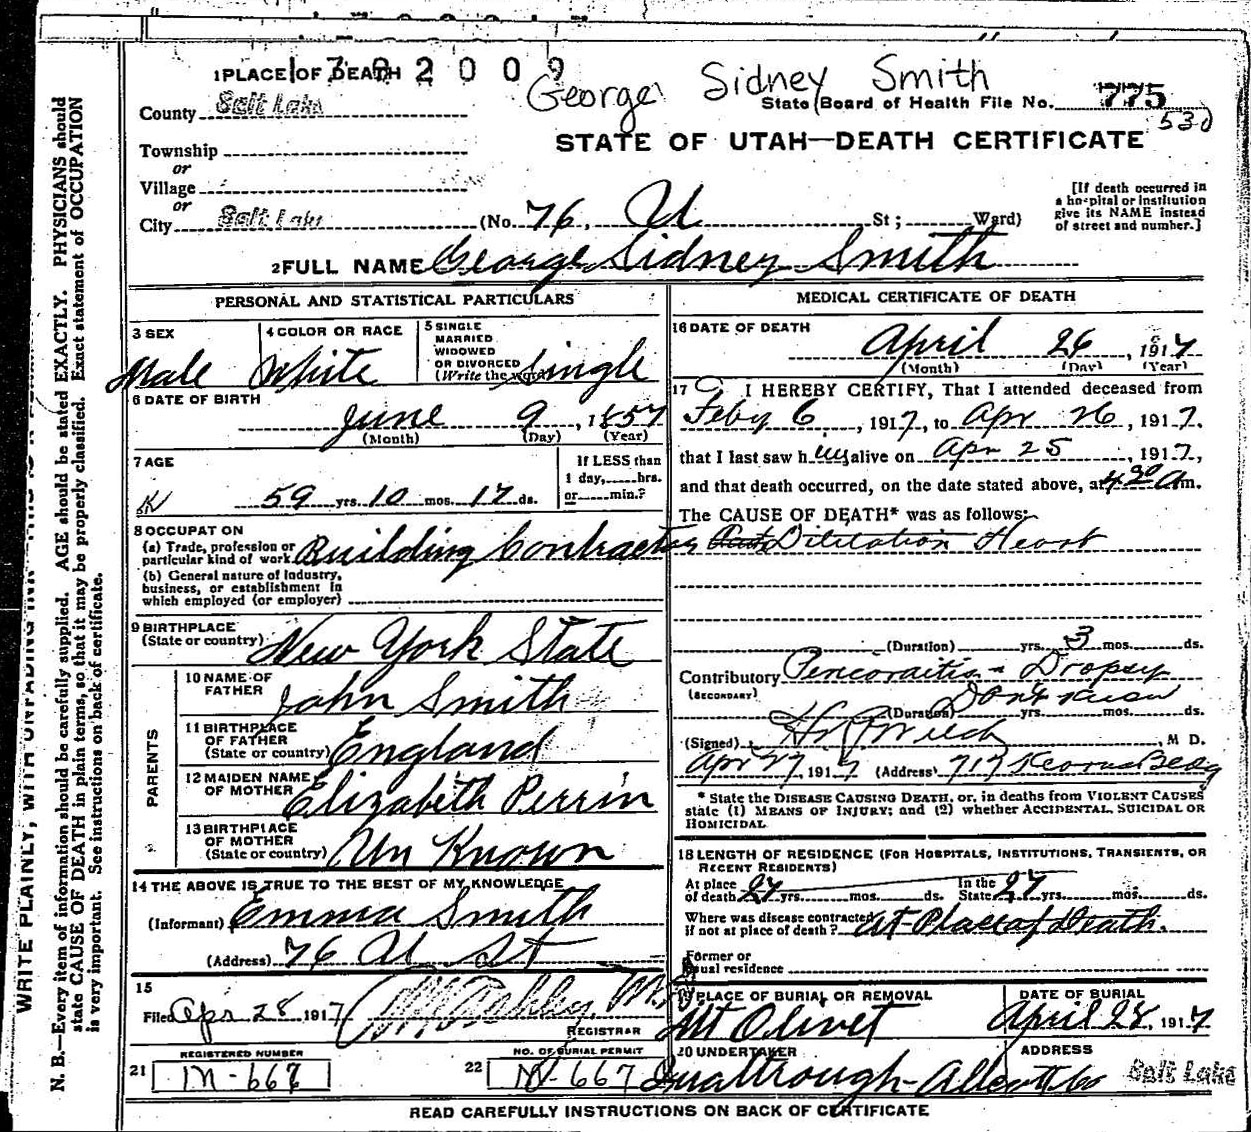 1 PLACE OF DEATH
2009
George Sidney Smith
County Salt Lake
State Board of Health File No. 775
530
Township
STATE OF UTAH—DEATH CERTIFICATE
or
Village
or
City Salt Lake (No. 76, U St; Ward)
[If death occurred in a hospital or institution give its NAME instead of street and number.]
2 FULL NAME George Sidney Smith
PERSONAL AND STATISTICAL PARTICULARS
3 SEX Male
4 COLOR OR RACE White
5 SINGLE MARRIED WIDOWED OR DIVORCED (Write the word) Single
6 DATE OF BIRTH June 9, 1857
(Month) (Day) (Year)
7 AGE 59 yrs. 10 mos. 17 ds.
If LESS than 1 day, hrs. or min.?
8 OCCUPATION
(a) Trade, profession or particular kind of work Building Contractor
(b) General nature of industry, business, or establishment in which employed (or employer)
9 BIRTHPLACE (State or country) New York State
PARENTS
10 NAME OF FATHER John Smith
11 BIRTHPLACE OF FATHER (State or country) England
12 MAIDEN NAME OF MOTHER Elizabeth Perrin
13 BIRTHPLACE OF MOTHER (State or country) Un Known
14 THE ABOVE IS TRUE TO THE BEST OF MY KNOWLEDGE
(Informant) Emma Smith
(Address) 76 U St
15
Filed Apr 28, 1917
REGISTRAR
21 REGISTERED NUMBER M-667
22 NO. OF BURIAL PERMIT M-667
MEDICAL CERTIFICATE OF DEATH
16 DATE OF DEATH April 26, 1917
(Month) (Day) (Year)
17 I HEREBY CERTIFY, That I attended deceased from
Feby 6, 1917, to Apr 26, 1917,
that I last saw him alive on Apr 25, 1917,
and that death occurred, on the date stated above, at 4 30 A m.
The CAUSE OF DEATH* was as follows:
Dilitation Heart
(Duration) yrs. 3 mos. ds.
Contributory Dropsy
(SECONDARY)
(Duration) Dont Know yrs. mos. ds.
(Signed) M D.
Apr 27, 1917 (Address) 717 Kearns Bldg
* State the DISEASE CAUSING DEATH, or, in deaths from VIOLENT CAUSES
state (1) MEANS OF INJURY; and (2) whether ACCIDENTAL, SUICIDAL OR
HOMICIDAL
18 LENGTH OF RESIDENCE (FOR HOSPITALS, INSTITUTIONS, TRANSIENTS, OR
RECENT RESIDENTS)
At place of death 27 yrs. mos. ds. In the State 27 yrs. mos. ds.
Where was disease contracted if not at place of death? At Place of Death.
Former or usual residence
19 PLACE OF BURIAL OR REMOVAL Mt Olivet
DATE OF BURIAL April 28, 1917
20 UNDERTAKER
ADDRESS Salt Lake
READ CAREFULLY INSTRUCTIONS ON BACK OF CERTIFICATE
N. B.—Every item of information should be carefully supplied. AGE should be stated EXACTLY. PHYSICIANS should
state CAUSE OF DEATH in plain terms, so that it may be properly classified. Exact statement of OCCUPATION
is very important. See instructions on back of certificate.